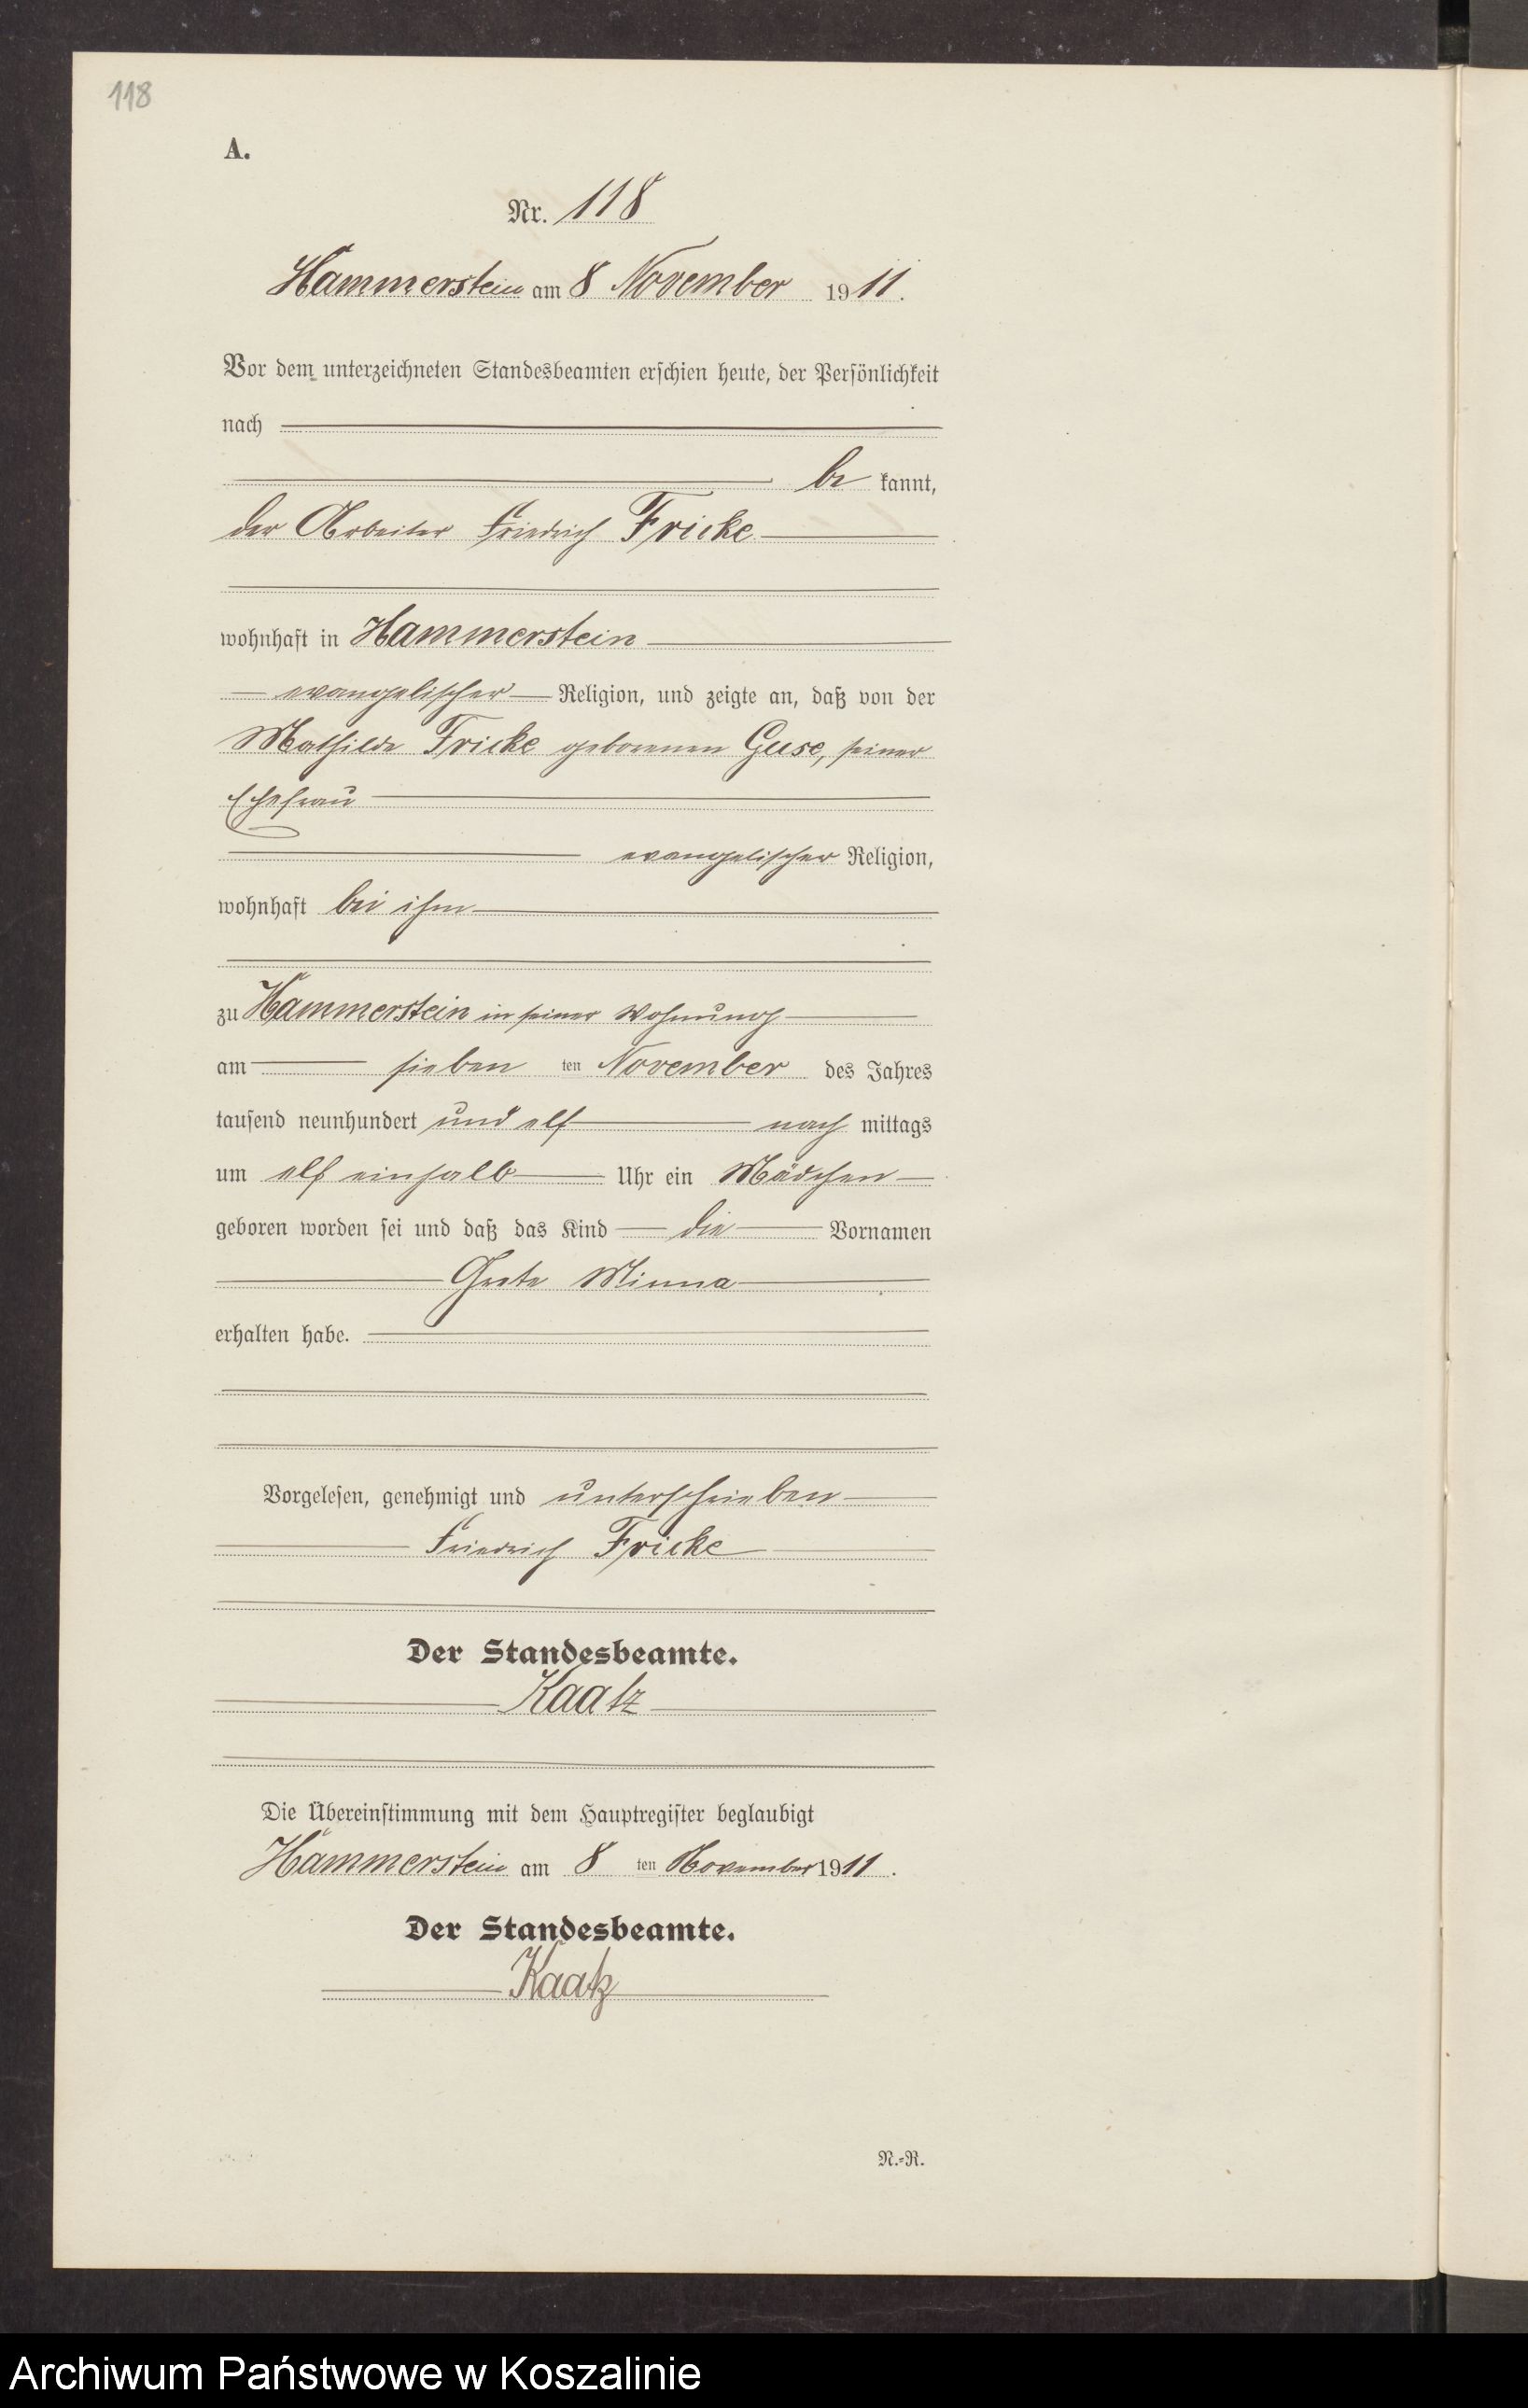 118
A.
Nr. 118
Hammerstein am 8 November 1911.
Vor dem unterzeichneten Standesbeamten erschien heute, der Persönlichkeit
nach
be kannt,
der Arbeiter Friedrich Fricke
wohnhaft in Hammerstein
evangelischer Religion, und zeigte an, daß von der
Mathilde Fricke geborenen Guse, seiner
Ehefrau
evangelischer Religion,
wohnhaft bei ihm
zu Hammerstein in seiner Wohnung
am sieben ten November des Jahres
tausend neunhundert und elf nach mittags
um elf einhalb Uhr ein Mädchen
geboren worden sei und daß das Kind die Vornamen
Grete Minna
erhalten habe.
Vorgelesen, genehmigt und unterschrieben
Friedrich Fricke
Der Standesbeamte.
Kaatz
Die Übereinstimmung mit dem Hauptregister beglaubigt
Hammerstein am 8 ten November 1911.
Der Standesbeamte.
Kaatz
N.-R.
Archiwum Państwowe w Koszalinie